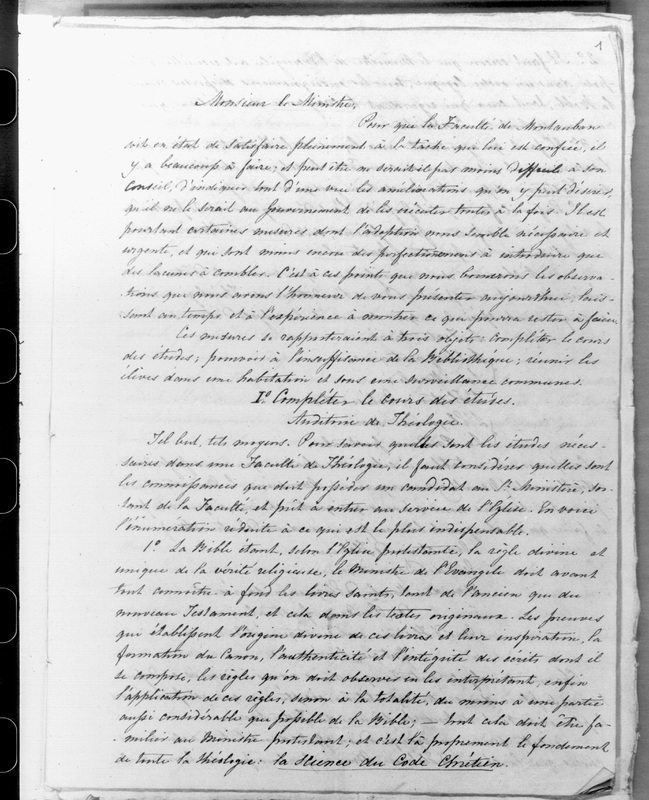 1
Monsieur le Ministre,
Pour que la Faculté de Montauban
soit en état de satisfaire pleinement à la tâche qui lui est confiée, il
y a beaucoup à faire; et peut être ne serait-il pas moins difficile à son
Conseil, d'indiquer tout d'une vue les améliorations qu'on y peut désirer,
qu'il ne le serait au Gouvernement de les exécuter toutes à la fois. Il est
pourtant certaines mesures dont l'adoption nous semble nécessaire et
urgente, et qui sont moins encore des perfectionnemens à introduire que
des lacunes à combler. C'est à ces points que nous bornerons les observa-
tions que nous avons l'honneur de vous présenter aujourd'hui, lais-
sant au temps et à l'expérience à montrer ce qui pourra rester à faire.
Ces mesures se rapporteraient à trois objets: Compléter le cours
des études; pourvoir à l'insuffisance de la Bibliothèque; réunir les
élèves dans une habitation et sous une surveillance communes.
I.° Compléter le cours des études.
Auditoire de Théologie.
Tel but, tels moyens. Pour savoir quelles sont les études néces-
saires dans une Faculté de Théologie, il faut considérer quelles sont
les connaissances que doit posséder un candidat au St. Ministère, sor-
tant de la Faculté, et prêt à entrer au service de l'Eglise. En voici
l'énumération réduite à ce qui est le plus indispensable.
1.° La Bible étant, selon l'Eglise protestante, la règle divine et
unique de la vérité religieuse, le Ministre de l'Evangile doit avant
tout connaître à fond les livres saints, tant de l'ancien que du
nouveau Testament, et cela dans les textes originaux. Les preuves
qui établissent l'origine divine de ces livres et leur inspiration, la
formation du Canon, l'authenticité et l'intégrité des écrits dont il
se compose, les règles qu'on doit observer en les interprétant, enfin
l'application de ces règles, sinon à la totalité, du moins à une partie
aussi considérable que possible de la Bible; — tout cela doit être fa-
milier au Ministre protestant; et c'est là proprement le fondement
de toute la théologie: la Science du Code Chrétien.